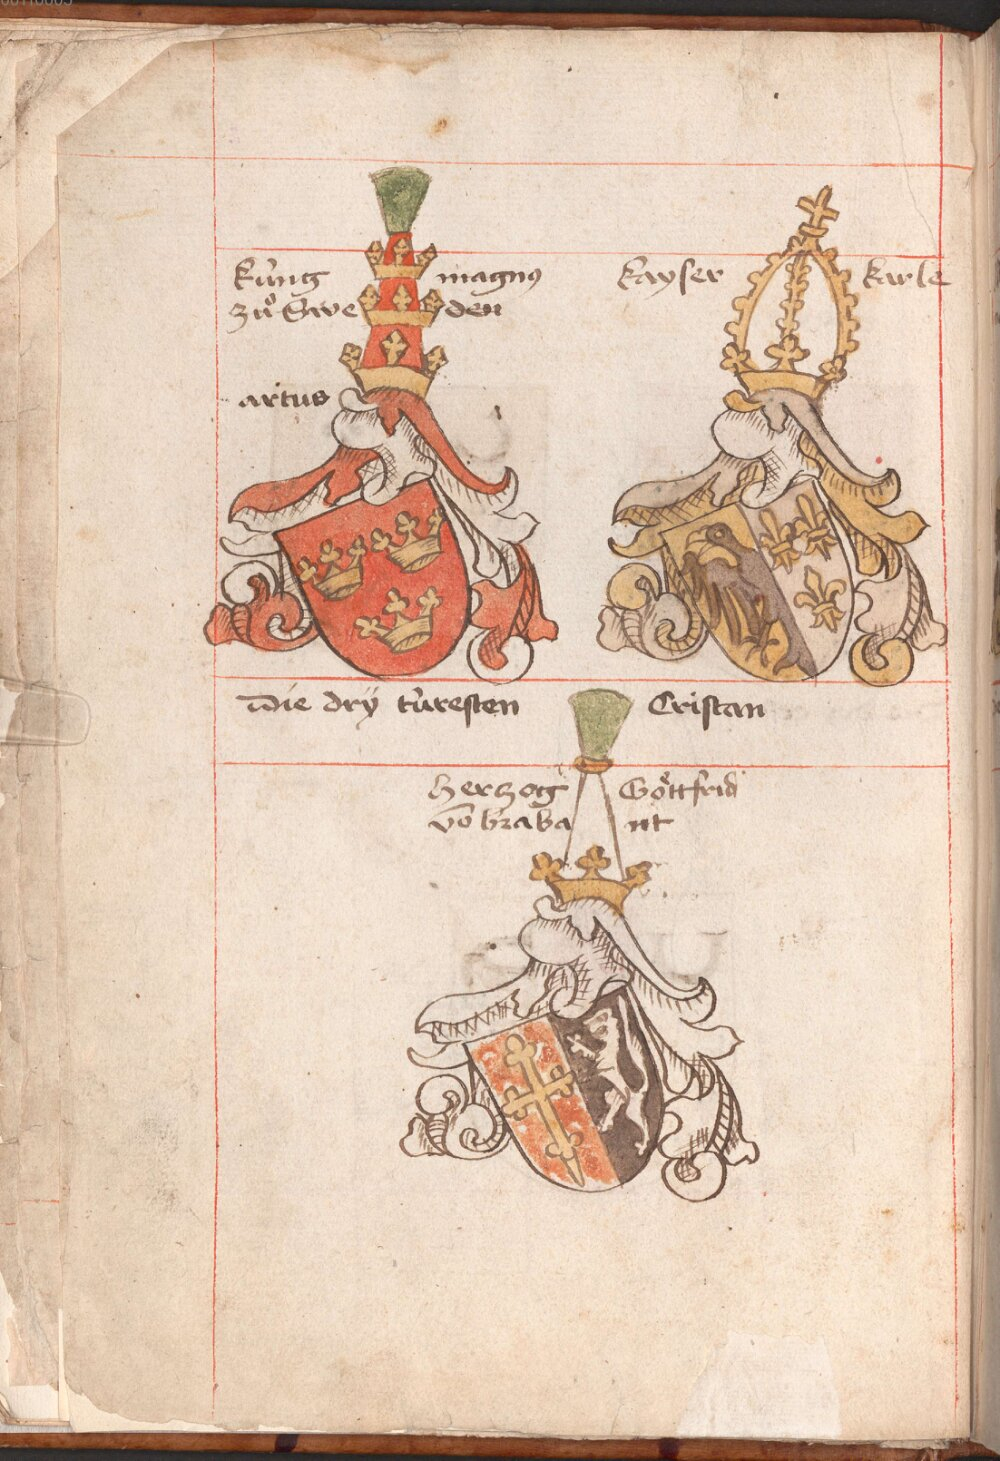 Kúng magnus
zů Sweden
artus
Kayser Karle
Die dry túresten Cristan
Herzog Göttfrid
vō brabant